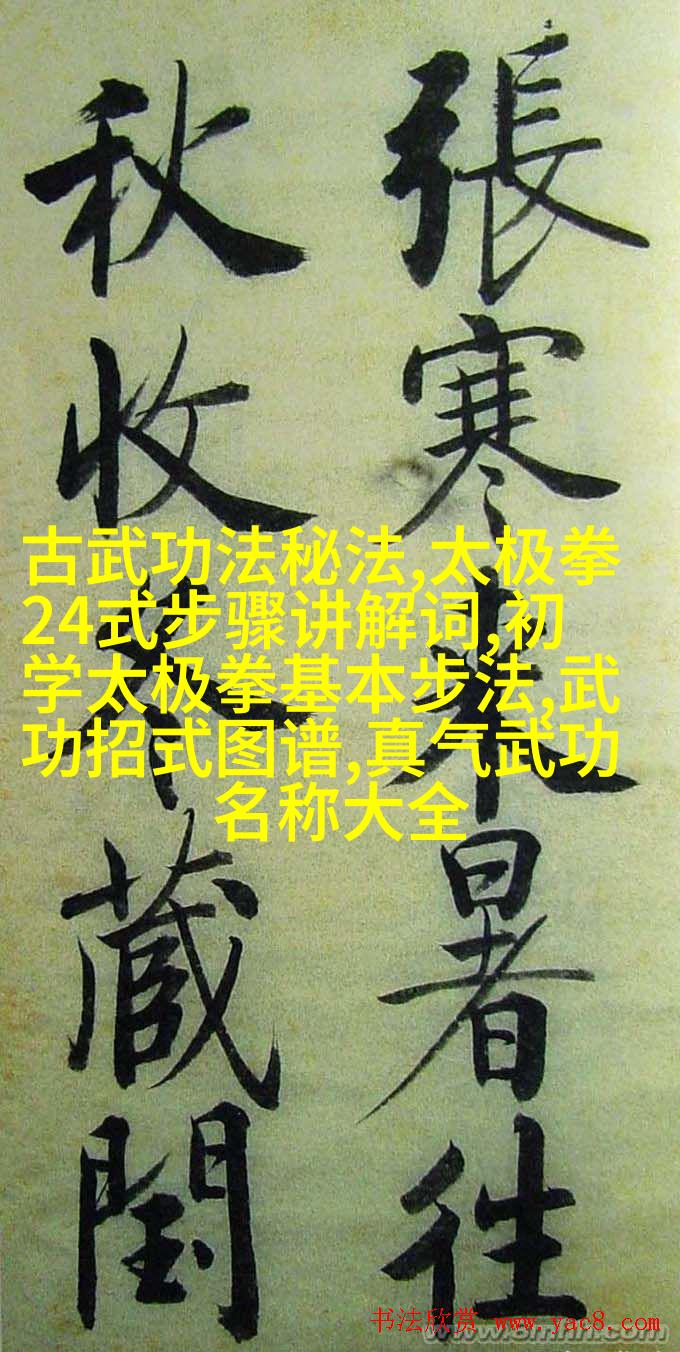 張寒来暑往
秋收冬蔵閏
古武功法秘法,太极拳
24式步骤讲解词,初
学太极拳基本步法,武
功招式图谱,真气武功
名称大全
书法欣赏 www.yac8.com